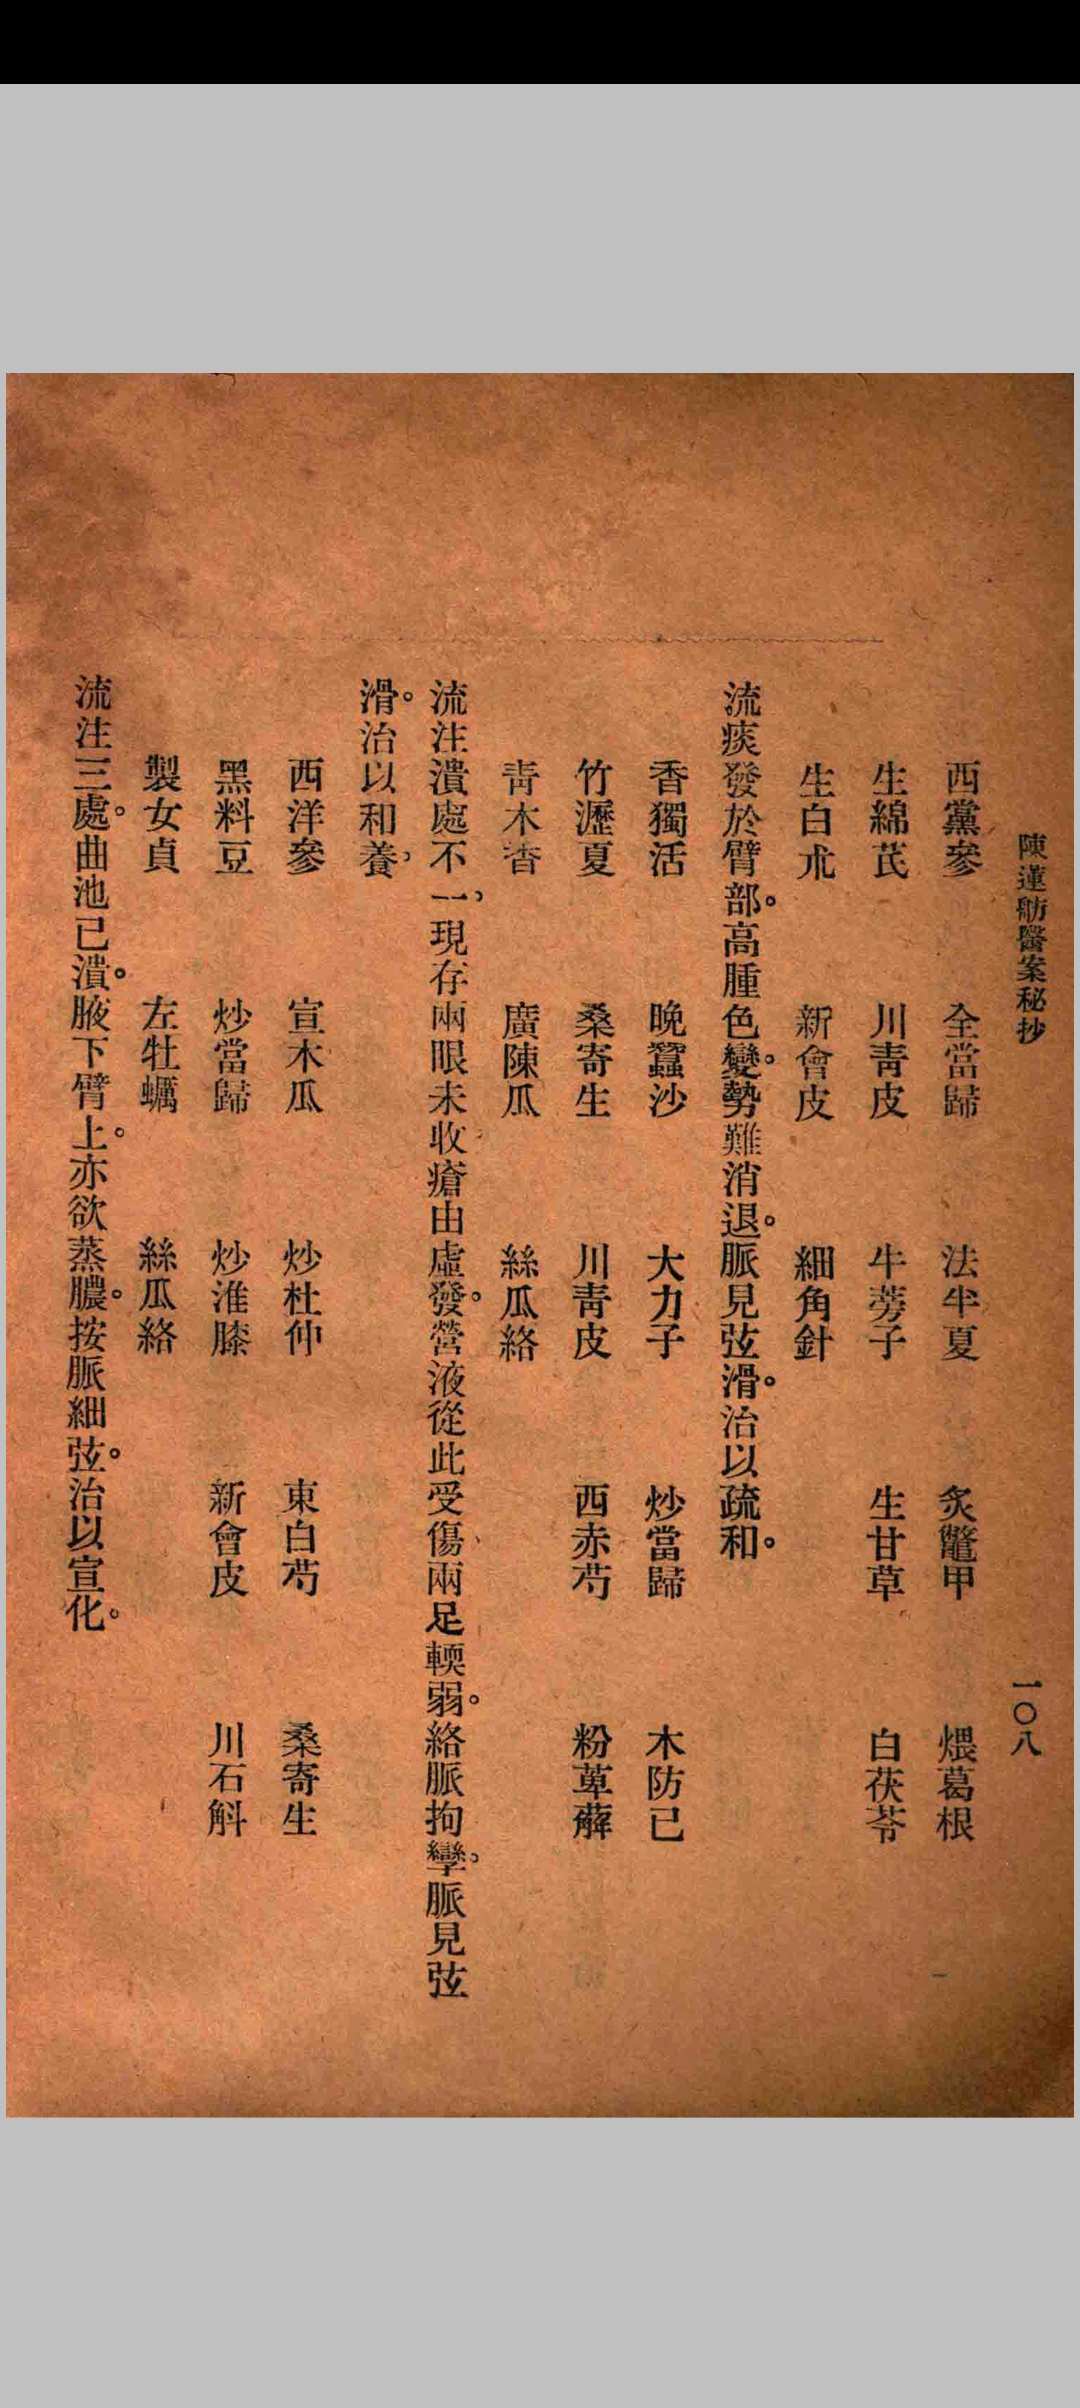 陳蓮舫醫案秘抄
一〇八
西黨參 全當歸 法半夏 炙鼈甲 煨葛根
生綿芪 川靑皮 牛蒡子 生甘草 白茯苓
生白朮 新會皮 細角針
流痰發於臂部。高腫色變。勢難消退。脈見弦滑。治以疏和。
香獨活 晩蠶沙 大力子 炒當歸 木防己
竹瀝夏 桑寄生 川靑皮 西赤芍 粉萆薢
靑木香 廣陳瓜 絲瓜絡
流注潰處不一，現存兩眼未收瘡由虛發。營液從此受傷兩足輭弱。絡脈拘攣。脈見弦
滑。治以和養，
西洋參 宣木瓜 炒杜仲 東白芍 桑寄生
黑料豆 炒當歸 炒淮膝 新會皮 川石斛
製女貞 左牡蠣 絲瓜絡
流注三處。曲池已潰。腋下臂上。亦欲蒸膿。按脈細弦。治以宣化。